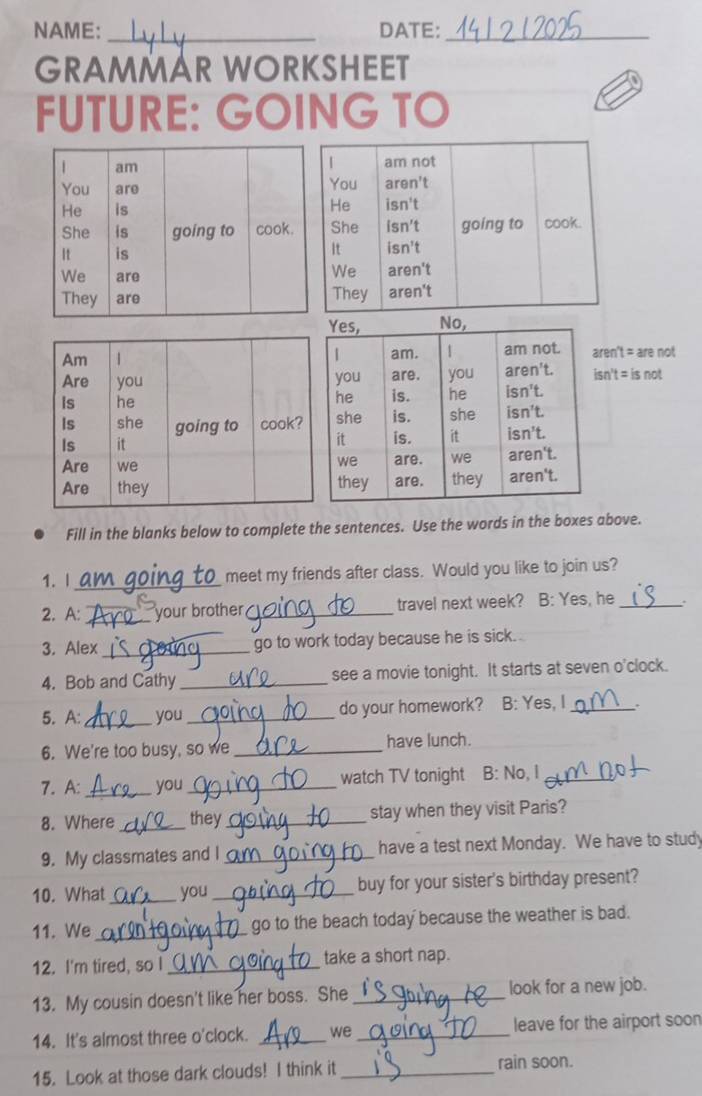 NAME: Lyly DATE: 14/2/2025
GRAMMAR WORKSHEET
FUTURE: GOING TO
I am
You are
He is
She is going to cook.
It is
We are
They are
I am not
You aren't
He isn't
She isn't going to cook.
It isn't
We aren't
They aren't
Am I
Are you
Is he
Is she going to cook?
Is it
Are we
Are they
Yes, No,
I am. I am not.
you are. you aren't.
he is. he isn't.
she is. she isn't.
it is. it isn't.
we are. we aren't.
they are. they aren't.
aren't = are not
isn't = is not
Fill in the blanks below to complete the sentences. Use the words in the boxes above.
1. I am going to meet my friends after class. Would you like to join us?
2. A: Are is your brother going to travel next week? B: Yes, he is.
3. Alex is going go to work today because he is sick.
4. Bob and Cathy are see a movie tonight. It starts at seven o'clock.
5. A: Are you going to do your homework? B: Yes, I am.
6. We're too busy, so we are have lunch.
7. A: Are you going to watch TV tonight B: No, I am not
8. Where are they going to stay when they visit Paris?
9. My classmates and I am going to have a test next Monday. We have to study
10. What are you going to buy for your sister's birthday present?
11. We aren't going to go to the beach today because the weather is bad.
12. I'm tired, so I am going to take a short nap.
13. My cousin doesn't like her boss. She is going to look for a new job.
14. It's almost three o'clock. Are we going to leave for the airport soon
15. Look at those dark clouds! I think it is rain soon.